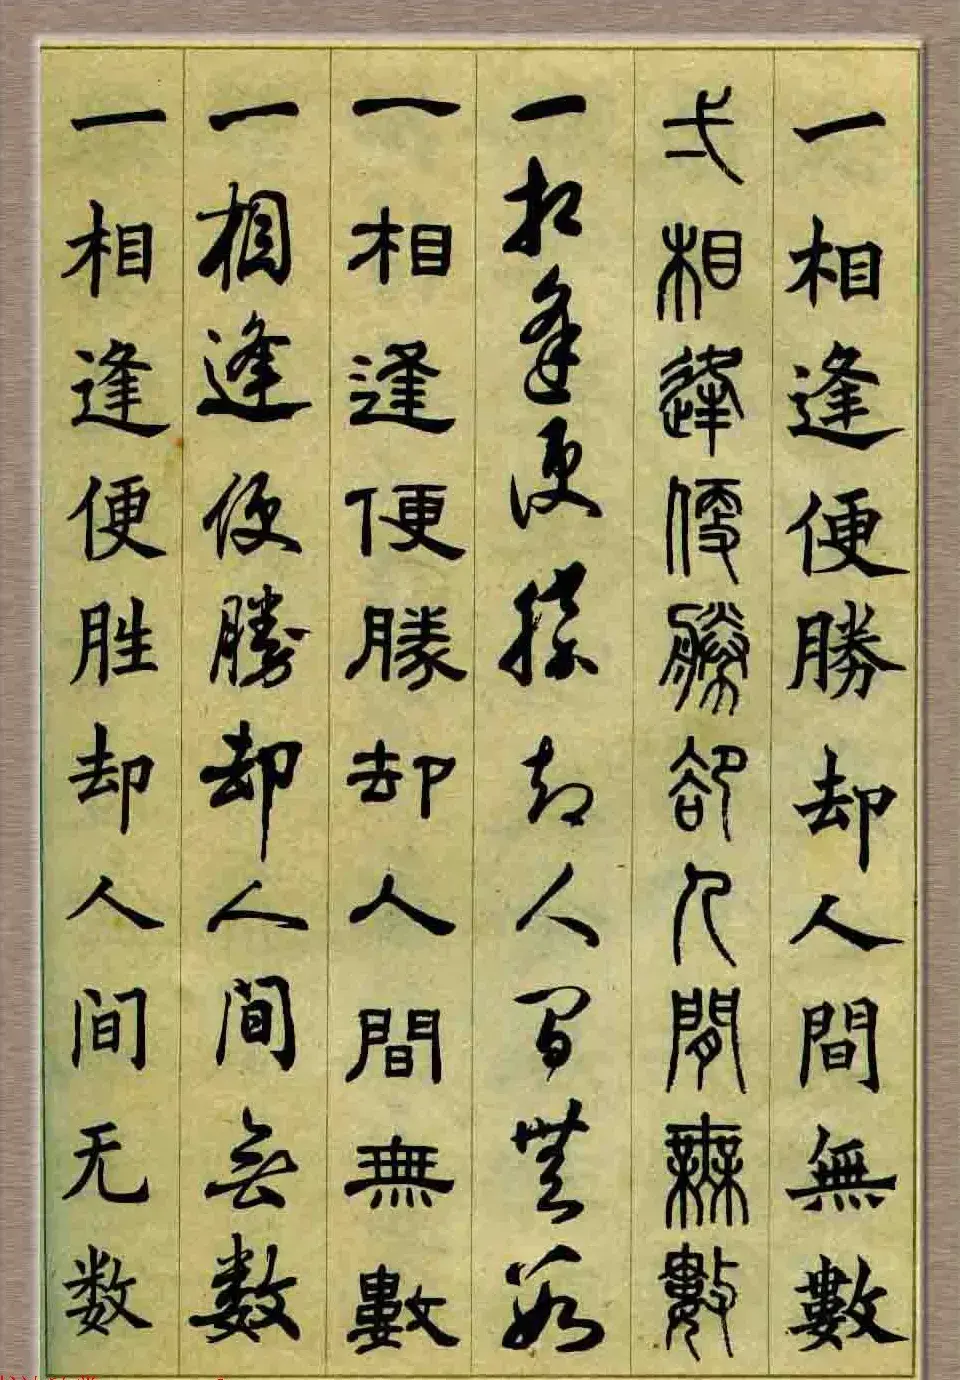 一相逢便勝却人間無數
弌相逢便勝卻人間無數
一相逢便勝却人间無数
一相逢便勝却人間無數
一相逢便勝却人间無数
一相逢便胜却人间无数